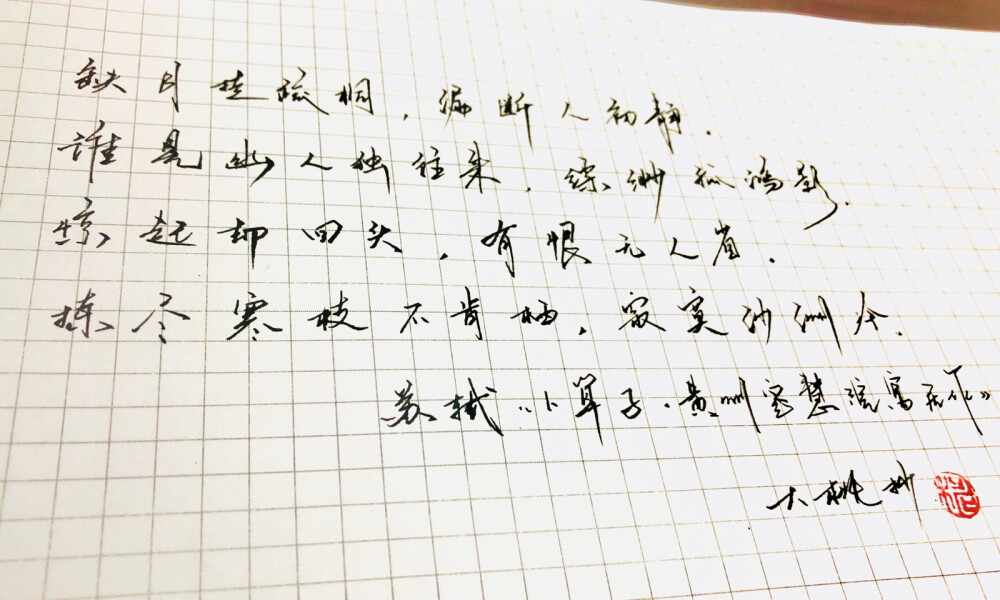 缺月挂疏桐，漏断人初静.
谁见幽人独往来，缥缈孤鸿影.
惊起却回头，有恨无人省.
拣尽寒枝不肯栖，寂寞沙洲冷.
苏轼《卜算子·黄州定慧院寓居作》
大桃抄